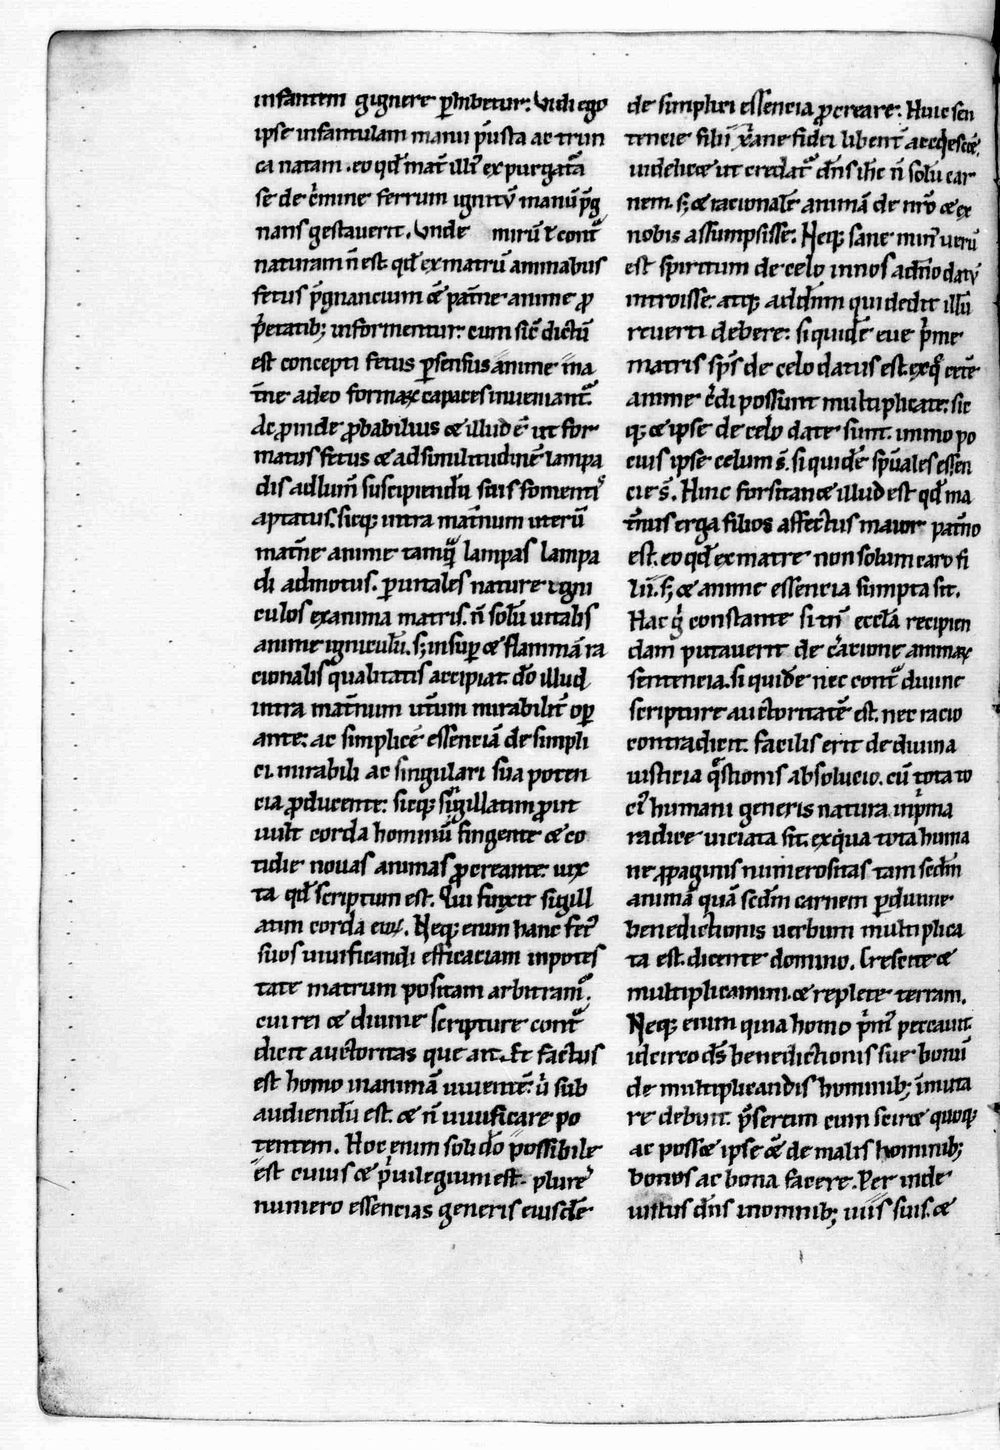 infantem gignere ꝑhibetur: Vidi ego
ipse infantulam manu p̃usta ac trun
ca natam .eo qd̃ mat̃ illi᾽ expurgat᷑a
se de c̃mine ferrum ignitũ manũ p̃g
nans gestauerit. Vnde mirũ ł cont᷑
naturam ñ est qd̃ ex matrũ animabus
fetus p̃gnancium & pat̃ne anime ꝓ
p̃etatib; informentur: cum sic̃ dictũ
est concepti fetus ꝑ sensus anime ma
t̃ne adeo formaꝝ capaces inueniant᷑.
Ac ꝓinde ꝓbabilius & illud ẽ. ut for
matus fetus & ad similitudinẽ lampa
dis ad lum̃ suscipiendũ suis foment᷒
aptatus. sicq; intra mat̃num uterũ
mat̃ne anime tamq̃ lampas lampa
di admotus. ꝑ uitales nature igni
culos ex anima matris. ñ solũ uitalis
anime igniculũ. s; insuꝑ & flammã ra
cionalis qualitatis accipiat. dõ illud
intra mat̃num ut̃um mirabilit̃ oꝑ
ante: ac simplicẽ essenciã de simpli
ci mirabili ac singulari sua poten
cia ꝓducente: sicq; sigillatim ꝓut
uult corda hominũ fingente & co
tidie nouas animas ꝓcreante: iux
ta qd̃ scriptum est. Qui finxit sigill
atim corda eoꝝ. Neq; enim hanc fet᷒
suos uiuificandi efficaciam in potes
tate matrum positam arbitram᷒.
cui rei & diuine scripture cont᷑
dicit auctoritas que ait. Et factus
est homo in animã uiuentẽ: ů sub
audiendũ est. & ñ uiuificare po
tentem. Hoc enim soli dõ possibile
est cuius & p̃uilegium est. plure᷒
numero essencias generis eiusdẽ
de simplici essencia ꝓcreare: Huic sen
tencie filii xp̃iane fidei libent̃ adq̃escẽ.
uidelicet ut credat᷑ dñs ihc ñ solũ car
nem. s; & racionalẽ animã de nr̃o & ex
nobis assumpsisse. Neq; sane min᷒ uerũ
est spiritum de celo in nos a dñ̃o datũ
introisse. atq; ad dñ̃m qui dedit illũ
reuerti debere: siquidẽ eue p̃me
matris sp̃s de celo datus est. ex q̃ cete᷑
anime c̃di possunt multiplicate: sic
q; & ipse de celo date sunt. immo po
cius ipse celum s̃. siquidẽ sp̃uales essen
cie s̃. Hinc forsitan & illud est qd̃ ma
t̃nus erga filios affectus maior pat̃no
est. eo qd̃ ex matre non solum caro fi
lii. s; & anime essencia sumpta sit.
Hac g̊ constante si tñ eccl̃a recipien
dam putauerit de c̃acione animaꝝ
sentencia. siquidẽ nec cont᷑ diuine
scripture auctoritatẽ est. nec racio
contradicit. facilis erit de diuina
iusticia q̃stionis absolucio. cũ tota to
ci᷒ humani generis natura in p̃ma
radice uiciata sit. ex qua tota huma
ne ꝓpaginis numerositas tam secdm̃
animã quã scdm̃ carnem ꝑ diuine
benedictionis uerbum multiplica
ta est. dicente domino. Crescite &
multiplicamini. & replete terram.
Neq; enim quia homo p̃m᷒ peccauit.
idcirco dš benedictionis sue bonũ
de multiplicandis hominib; im̃uta
re debuit. p̃sertim cum sciret quoq;
ac posset ipse & de malis hominib;
bonos ac bona facere. Per inde
iustus dñs in omnib; uiis suis. &